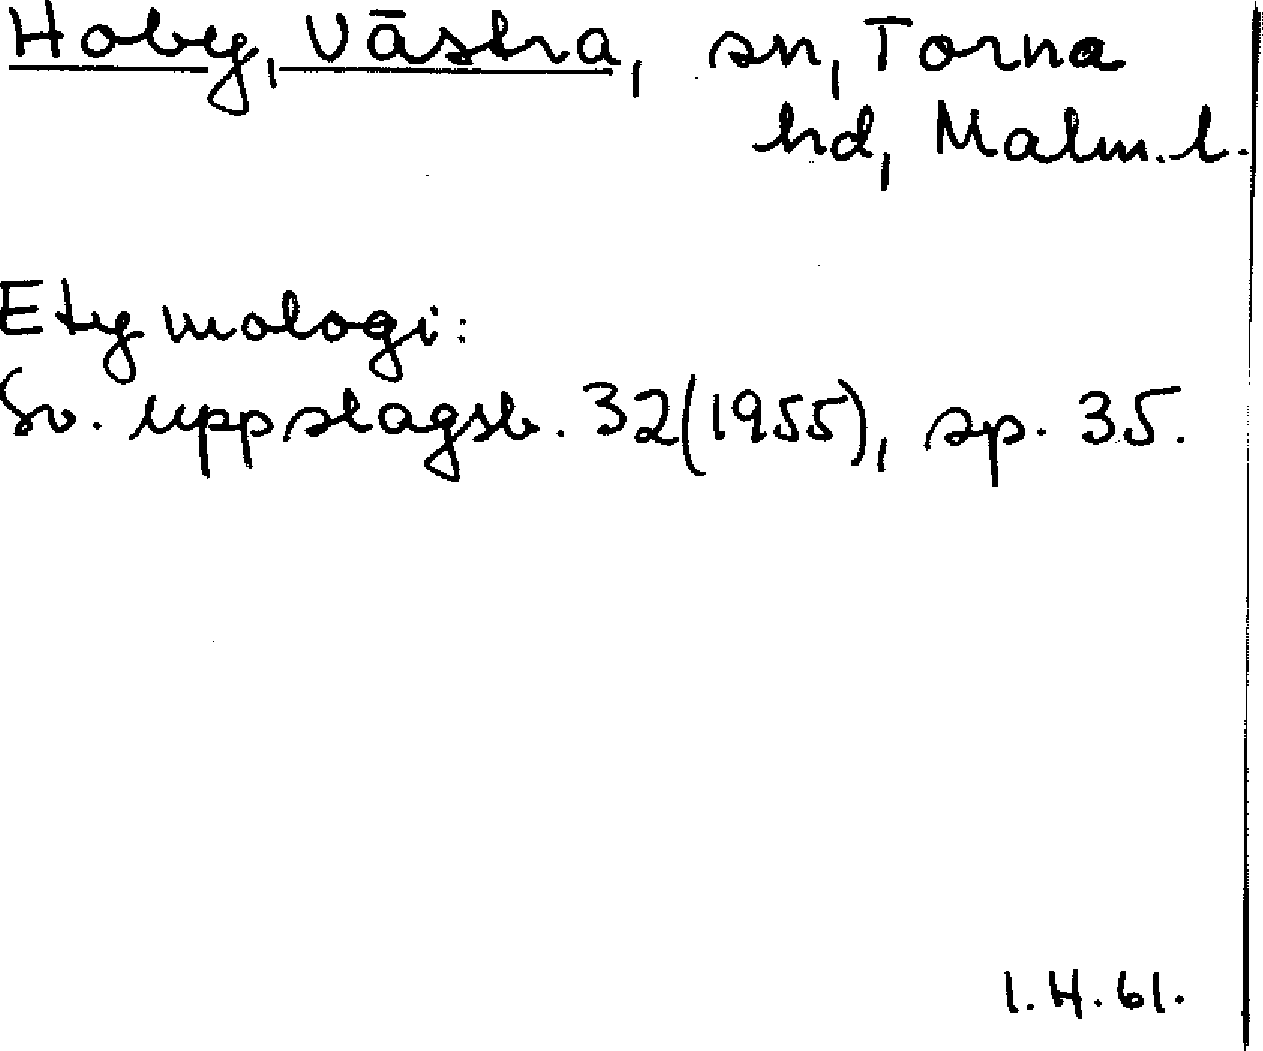 Hoby, Västra, sn, Torna
hd, Malm. l.
Etymologi:
Sv. uppslagsb. 32(1955), sp. 35.
I.H. 61.